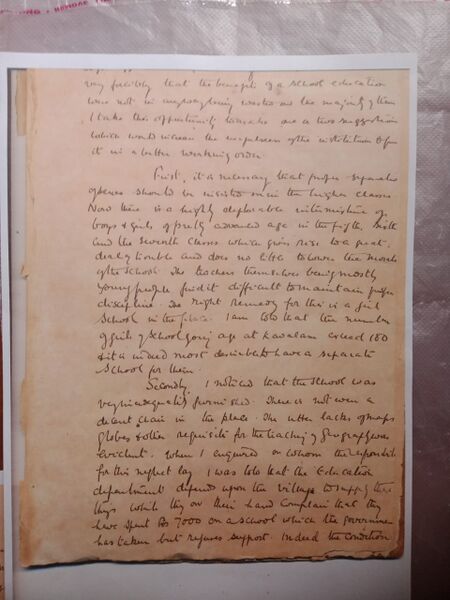 very forcibly that the benefit of a school education
were not in any way being wasted on the majority of them
I take this opportunity to make one or two suggestions
which would increase the usefulness of the institution & put
it in a better working order.
First, it is necessary that proper separation
of sexes should be insisted on in the higher classes
Now there is a highly deplorable intermixture of
boys & girls of pretty advanced age in the fifth, sixth
and the seventh classes which gives rise to a great
deal of trouble and does no little to lower the morals
of the school. The teachers themselves being mostly
young people find it difficult to maintain proper
discipline. The right remedy for this is a girls
school in the place. I am told that the number
of girls of school going age at Kavalam exceed 180
& it is indeed most desirable to have a separate
school for them.
Secondly, I noticed that the school was
very inadequately furnished. There is not even a
decent chair in the place. The utter lack of maps
globes & other requisite for the teaching of Geography was
evident. When I enquired on whom the responsibility
for this neglect lay I was told that the Education
department depends upon the village to supply these
things while they on their hand complain that they
have spent Rs 7000 on a school which the government
has taken but refuses support. Indeed the condition